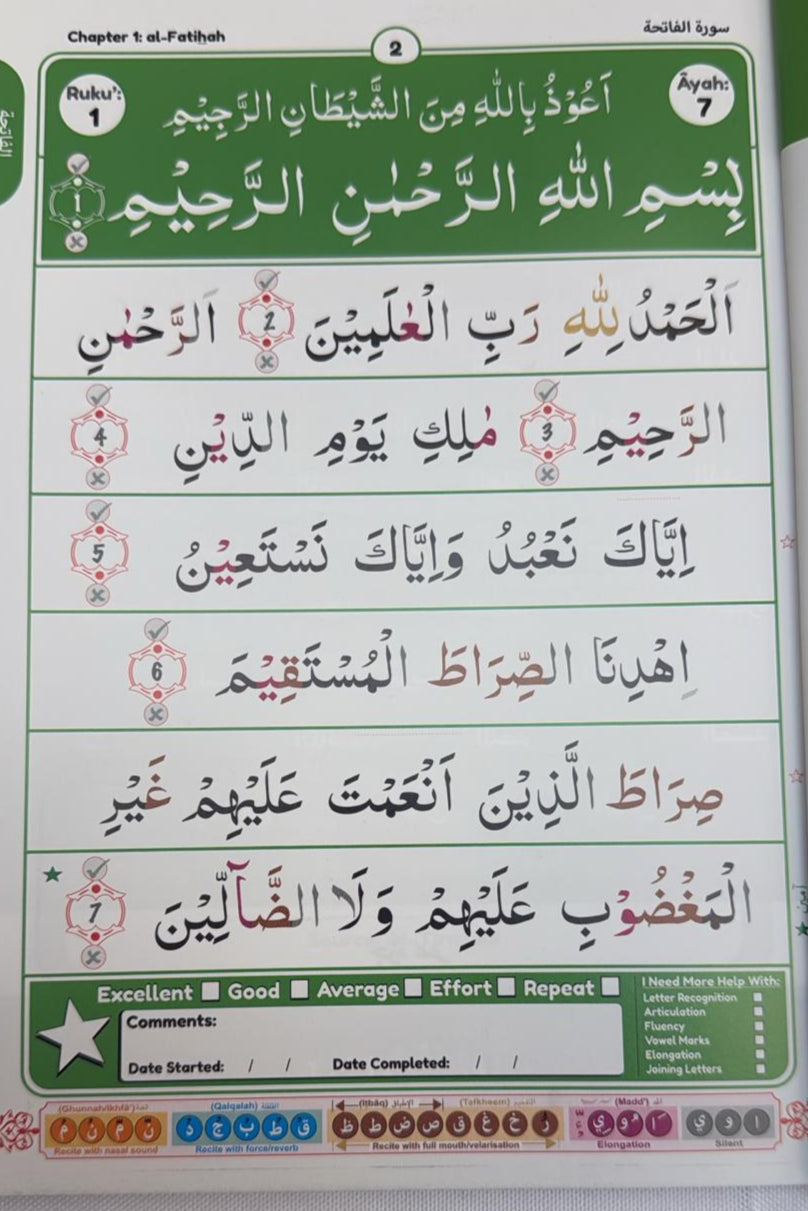 Chapter 1: al-Fatiḥah
2
سورة الفاتحة
Ruku': 1
Āyah: 7
اَعُوْذُ بِاللّٰهِ مِنَ الشَّيْطَانِ الرَّجِيْمِ
بِسْمِ اللّٰهِ الرَّحْمٰنِ الرَّحِيْمِ 1
اَلْحَمْدُ لِلّٰهِ رَبِّ الْعٰلَمِيْنَ 2 اَلرَّحْمٰنِ
الرَّحِيْمِ 3 مٰلِكِ يَوْمِ الدِّيْنِ 4
اِيَّاكَ نَعْبُدُ وَاِيَّاكَ نَسْتَعِيْنُ 5
اِهْدِنَا الصِّرَاطَ الْمُسْتَقِيْمَ 6
صِرَاطَ الَّذِيْنَ اَنْعَمْتَ عَلَيْهِمْ غَيْرِ
الْمَغْضُوْبِ عَلَيْهِمْ وَلَا الضَّآلِّيْنَ 7
Excellent Good Average Effort Repeat
Comments:
Date Started: / / Date Completed: / /
I Need More Help With:
Letter Recognition
Articulation
Fluency
Vowel Marks
Elongation
Joining Letters
(Ghunnah/Ikhfa')
Recite with nasal sound
(Qalqalah)
ق ط ب ج د
Recite with force/reverb
(Iṭbāq) الإطباق (Tafkheem)
ر خ غ ق ص ض ط ظ
Recite with full mouth/velarisation
(Madd')
Elongation
ا و ي
Silent
الفاتحة